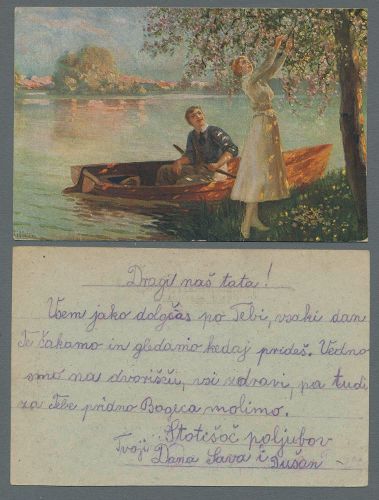 Dragi naš tata!
Vsem jako dolgčas po Tebi, vsaki dan
Te čakamo in gledamo kedaj prideš. Vedno
smo na dvorišču, vsi zdravi, pa tudi
za Tebe pridno Bogeca molimo.
Stotisoč poljubov
Tvoji Dana Sava i Dušan